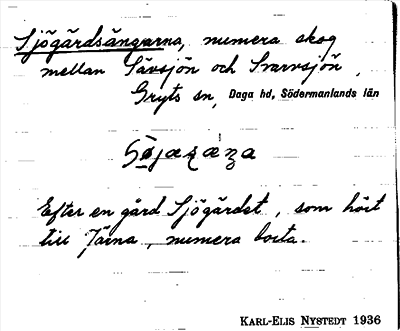 Sjögärdsängarna, numera skog
mellan Sävsjön och Svarvsjön,
Gryts sn, Daga hd, Södermanlands län
Efter en gård Sjögärdet, som hört
till Järna, numera borta.
KARL-ELIS NYSTEDT 1936